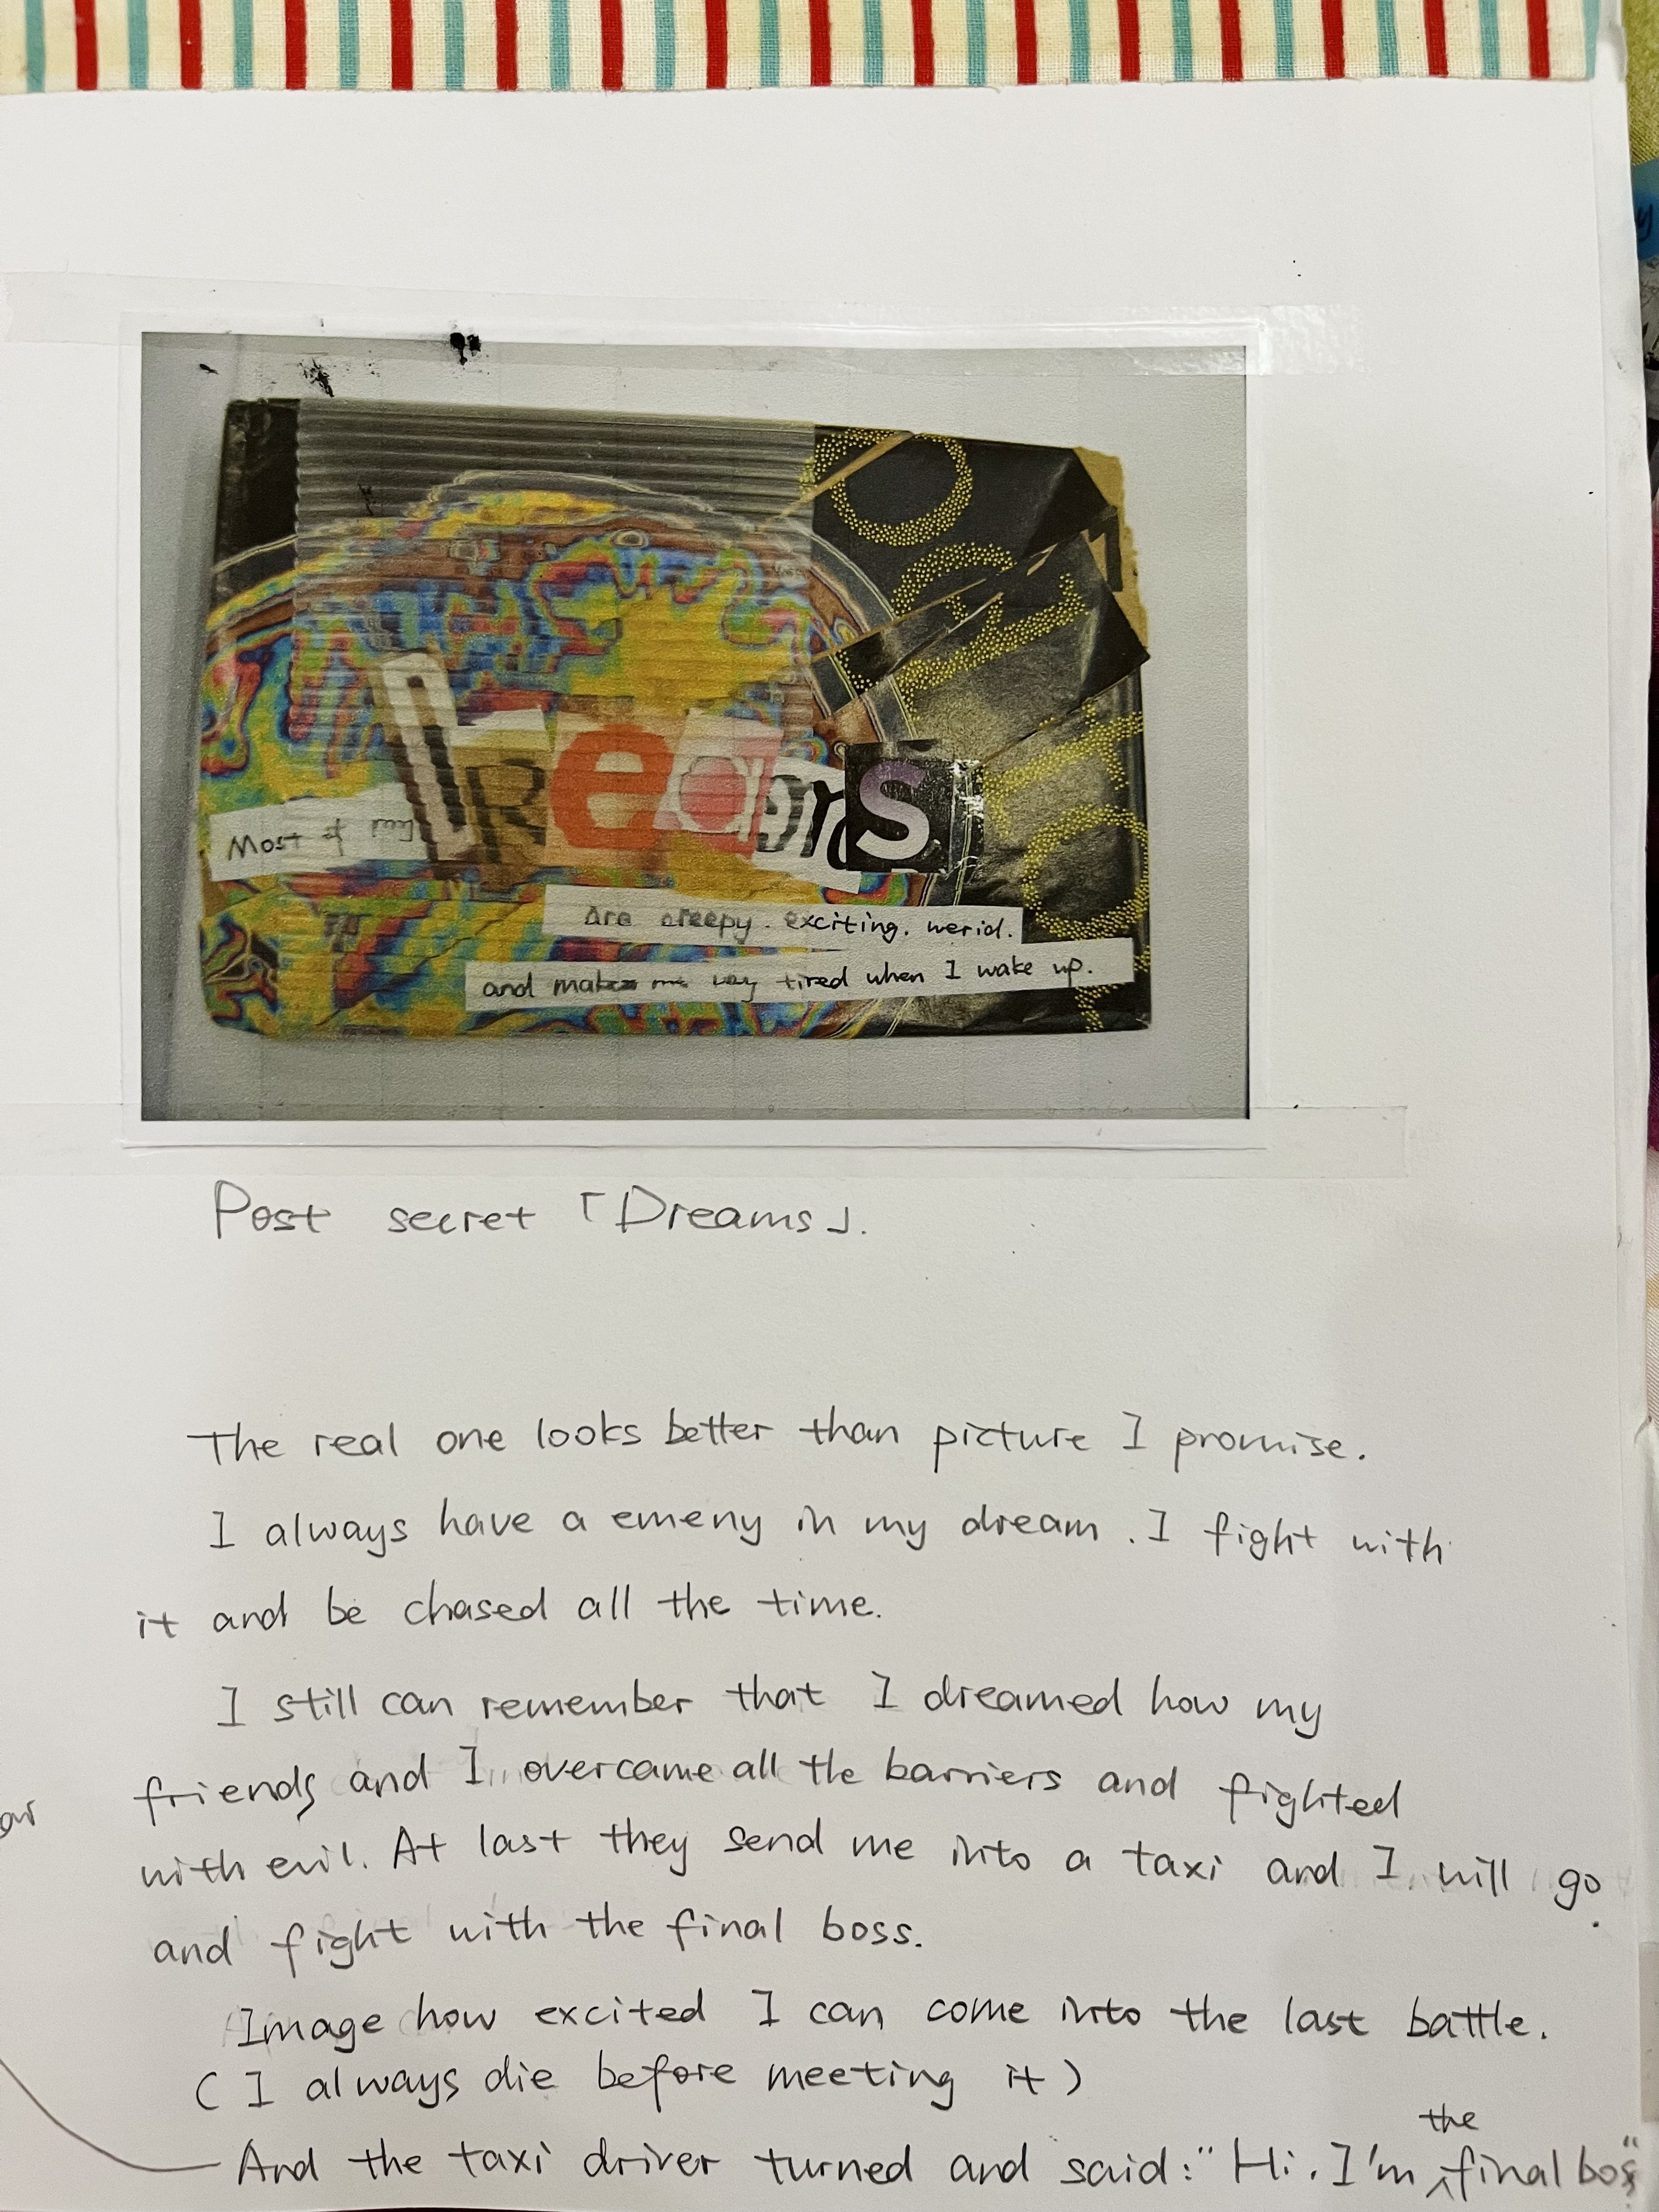 Most of my
DReams
are creepy. exciting. werid.
and makes me very tired when I wake up.
Post secret「Dreams」.
The real one looks better than picture I promise.
I always have a emeny in my dream. I fight with
it and be chased all the time.
I still can remember that I dreamed how my
friends and I overcame all the barriers and fighted
with evil. At last they send me into a taxi and I will go
and fight with the final boss.
Image how excited I can come into the last battle.
( I always die before meeting it )
And the taxi driver turned and said: "Hi. I'm the final boss"